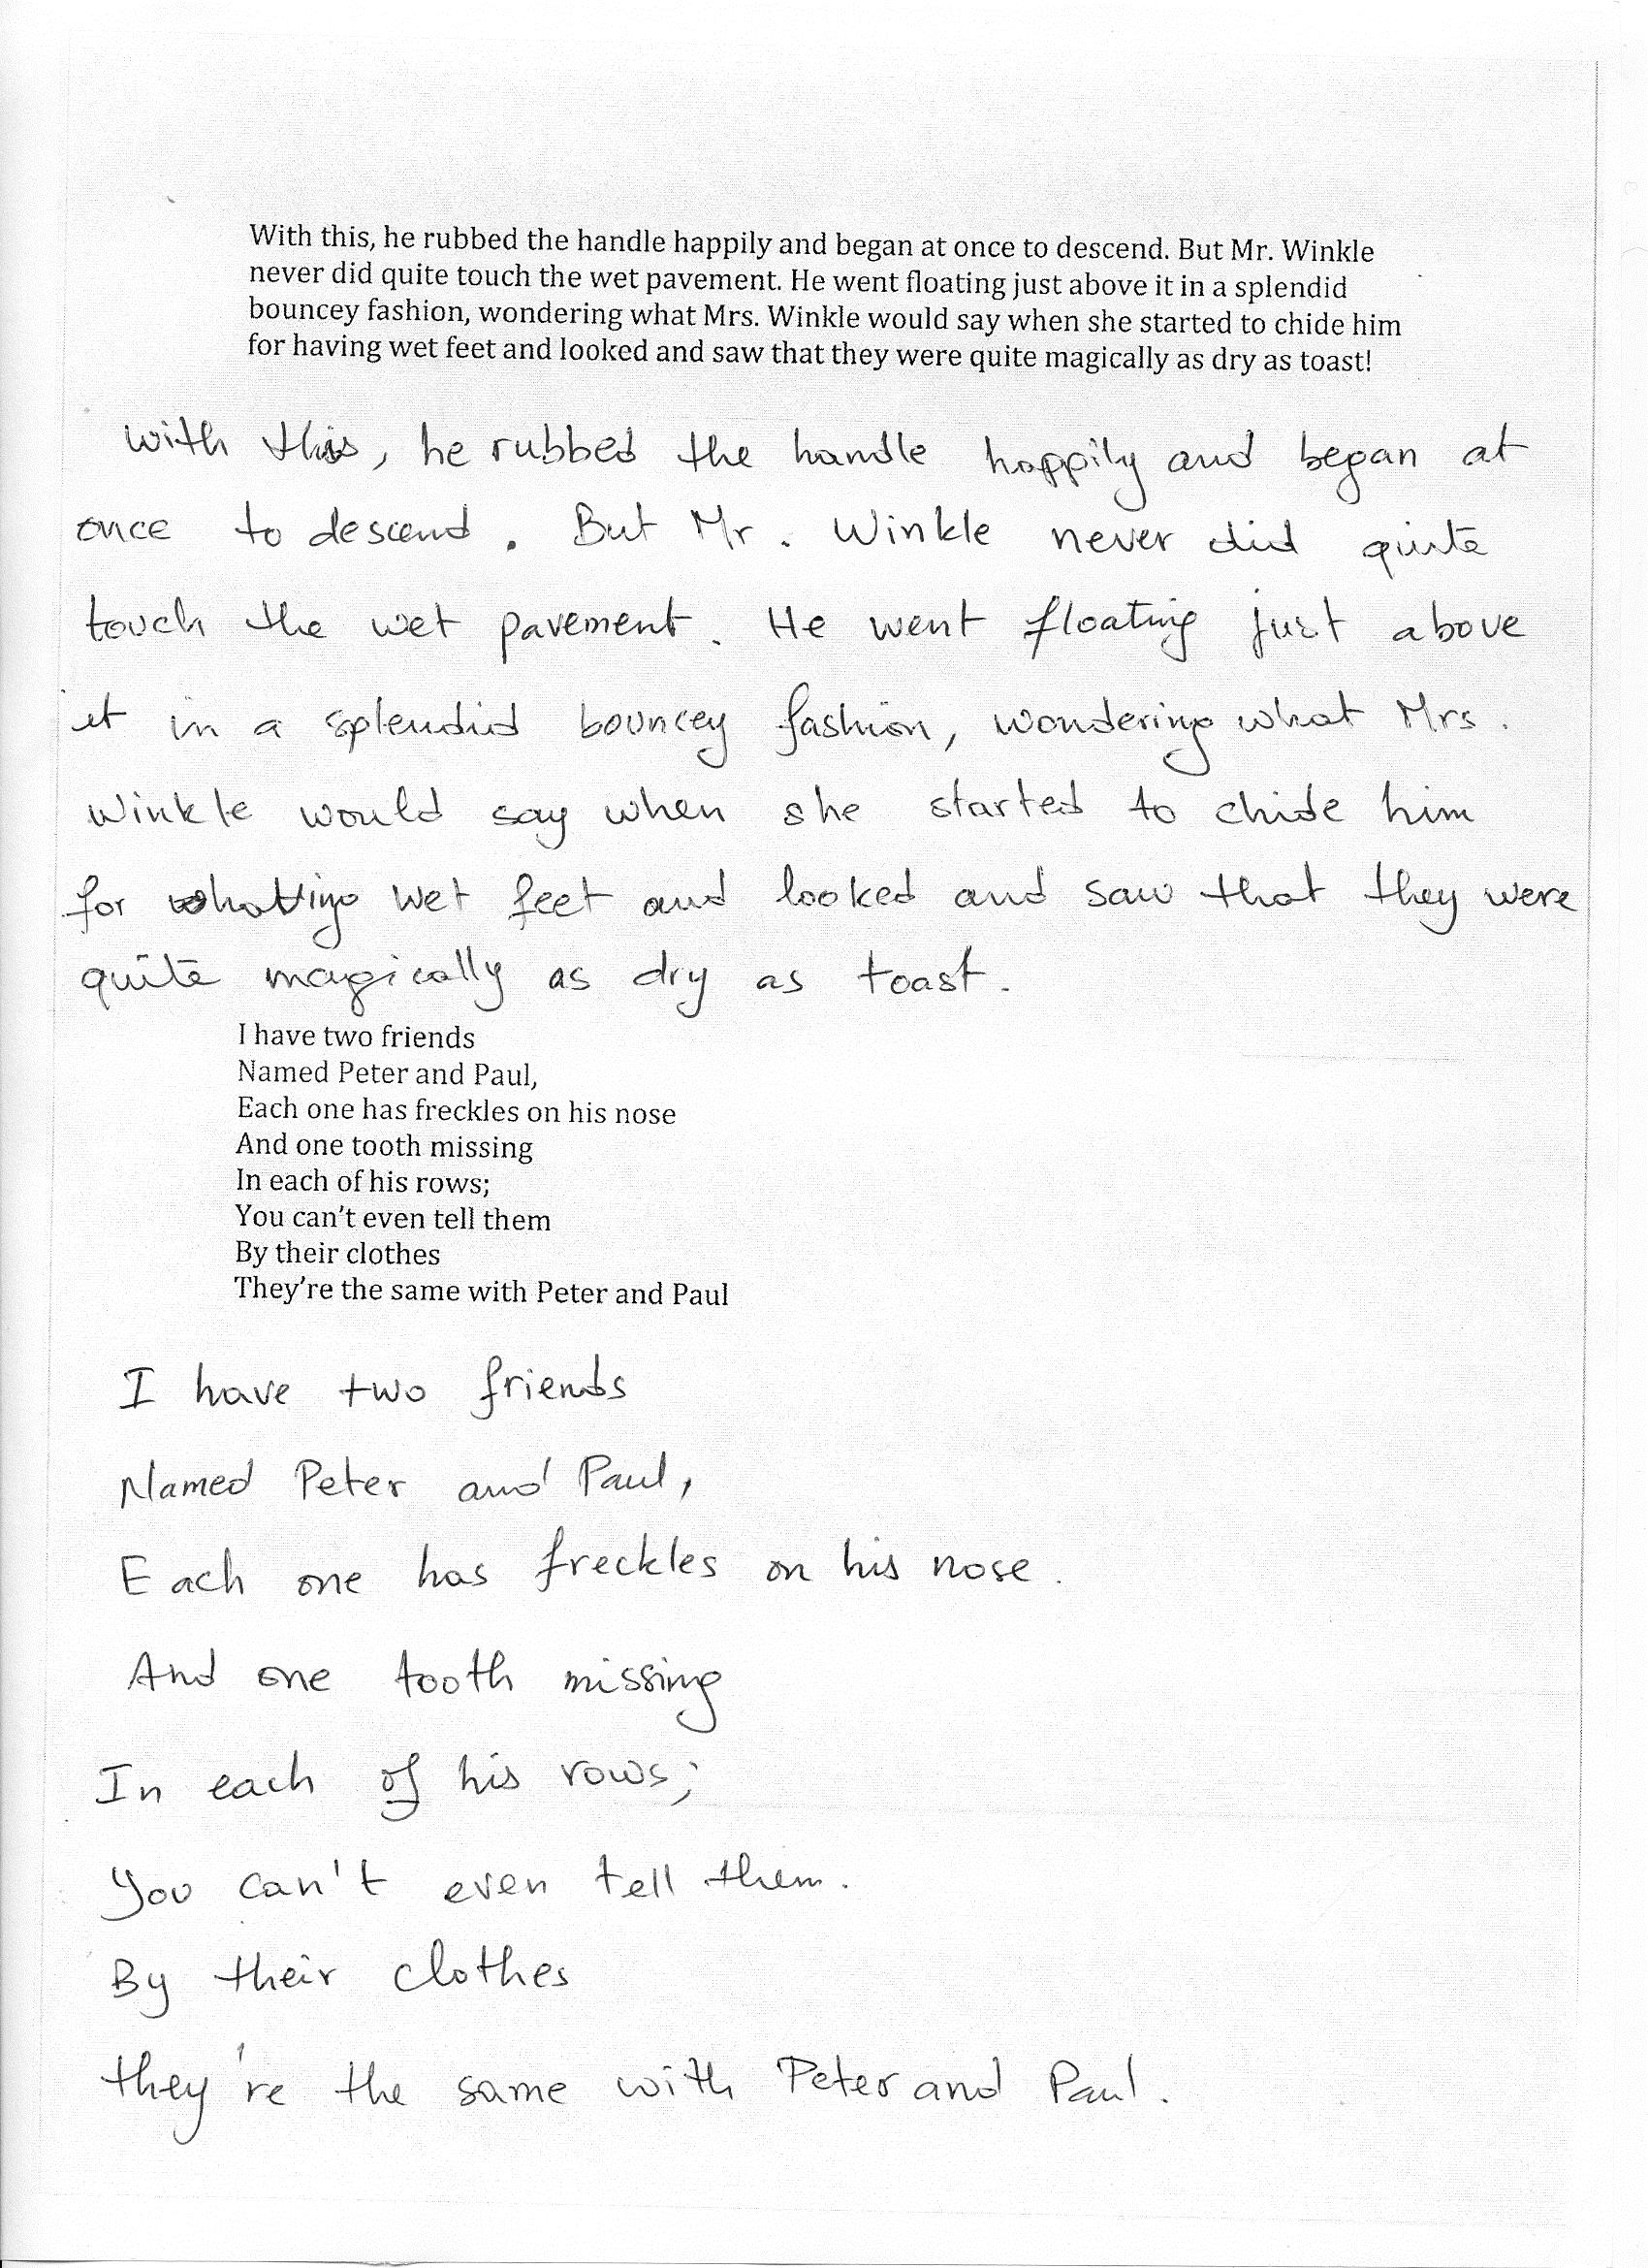 With this, he rubbed the handle happily and began at once to descend. But Mr. Winkle
never did quite touch the wet pavement. He went floating just above it in a splendid
bouncey fashion, wondering what Mrs. Winkle would say when she started to chide him
for having wet feet and looked and saw that they were quite magically as dry as toast!
with this, he rubbed the handle happily and began at
once to descend. But Mr. Winkle never did quite
touch the wet pavement. He went floating just above
it in a splendid bouncey fashion, wondering what Mrs.
Winkle would say when she started to chide him
for wet feet and looked and saw that they were
quite magically as dry as toast.
I have two friends
Named Peter and Paul,
Each one has freckles on his nose
And one tooth missing
In each of his rows;
You can't even tell them
By their clothes
They're the same with Peter and Paul
I have two friends
Named Peter and Paul,
Each one has freckles on his nose.
And one tooth missing
In each of his rows;
You can't even tell them.
By their clothes
they're the same with Peter and Paul.